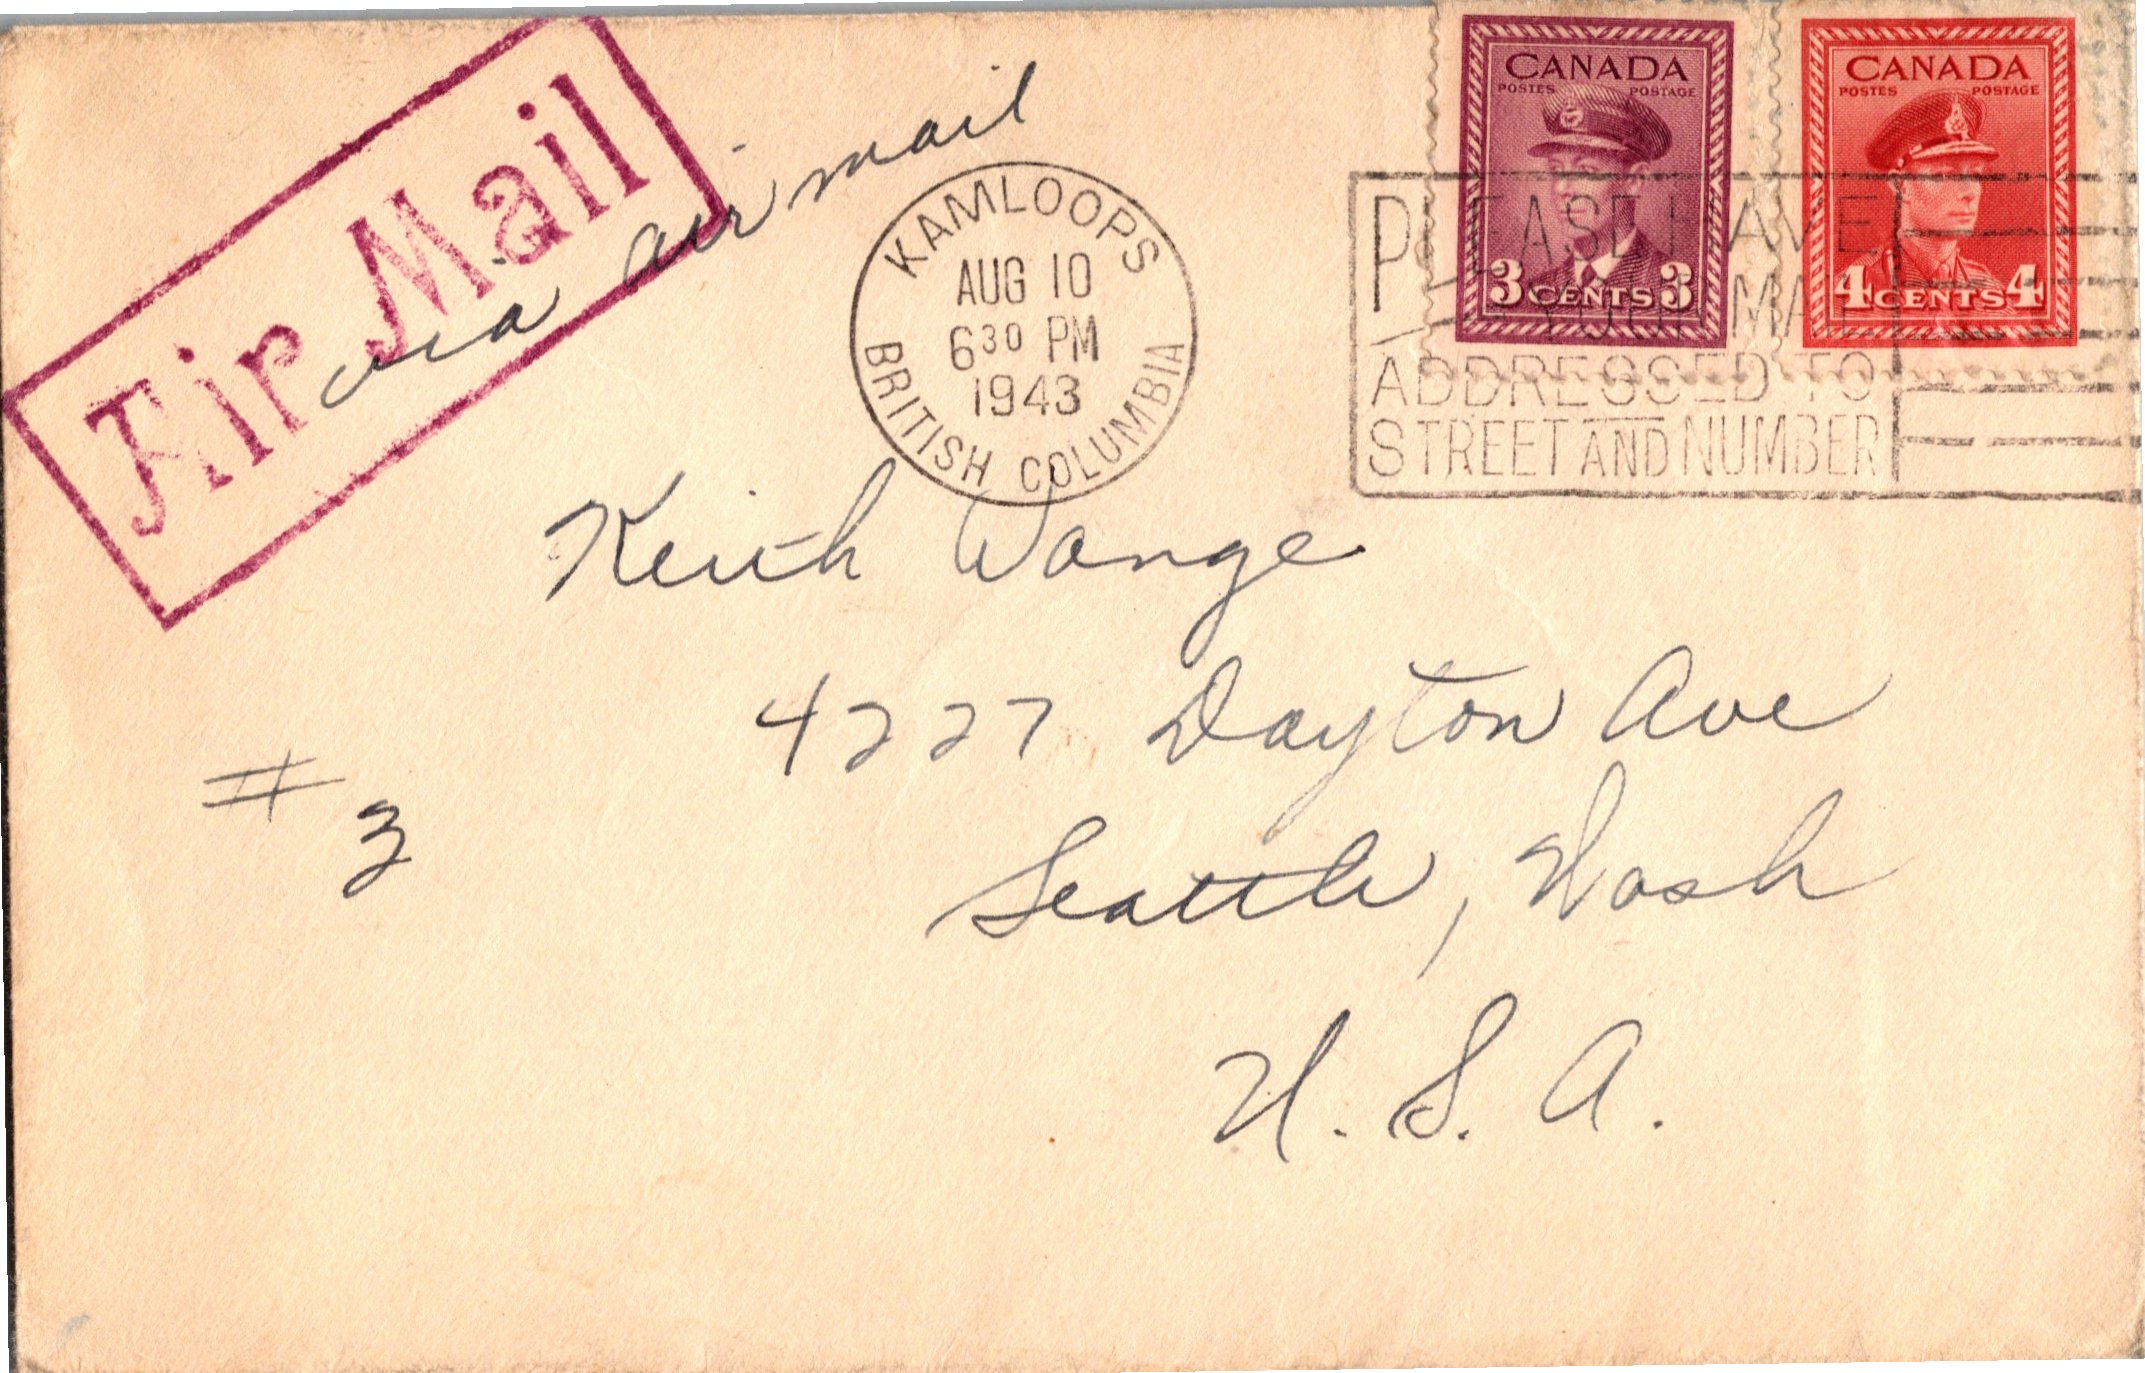 Air Mail
via air mail
KAMLOOPS
AUG 10
6 30 PM
1943
BRITISH COLUMBIA
CANADA
POSTES POSTAGE
3 CENTS 3
CANADA
POSTES POSTAGE
4 CENTS 4
PLEASE HAVE
YOUR MAIL
ADDRESSED TO
STREET AND NUMBER
Keith Wange
4227 Dayton Ave
# 3
Seattle, Wash
U. S. A.